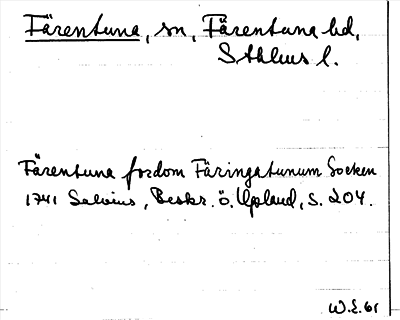 Färentuna, sn, Färentuna hd,
Sthlms l.
Färentuna fordom Färingatunum Socken
1741 Salvius, Beskr. ö. Upland, s. 204.
W.L. 61